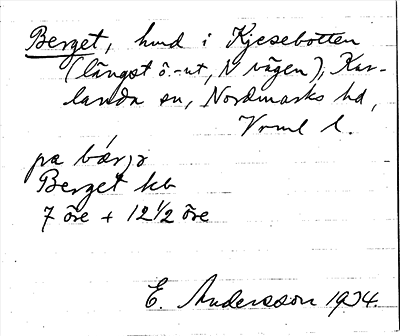 Berget, hmd i Kjesebotten
(längst ö.-ut, N vägen), Kar-
landa sn, Nordmarks hd,
Vrml l.
pa bár,ɔ
Berget kb
7 öre + 12 1/2 öre
E. Andersson 1924.